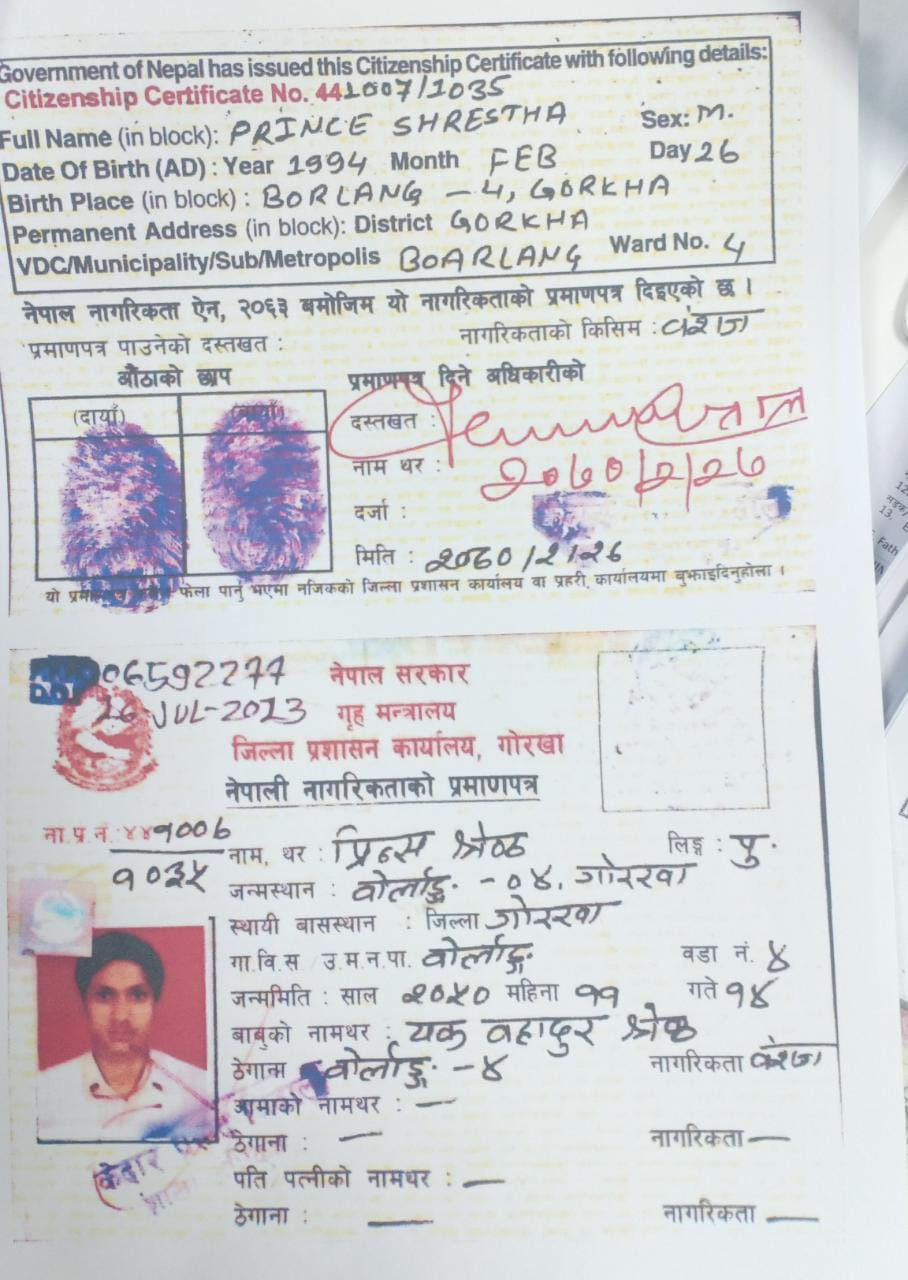 Government of Nepal has issued this Citizenship Certificate with following details:
Citizenship Certificate No. 441007/1035
Full Name (in block): PRINCE SHRESTHA Sex: M.
Date Of Birth (AD) : Year 1994 Month FEB Day 26
Birth Place (in block) : BORLANG - 4, GORKHA
Permanent Address (in block): District GORKHA
VDC/Municipality/Sub/Metropolis BOARLANG Ward No. 4
नेपाल नागरिकता ऐन, २०६३ बमोजिम यो नागरिकताको प्रमाणपत्र दिइएको छ ।
प्रमाणपत्र पाउनेको दस्तखत : नागरिकताको किसिम : वंशज
औंठाको छाप प्रमाणपत्र दिने अधिकारीको
(दायाँ) (बायाँ)
दस्तखत :
नाम थर : २०७०/२/२७
दर्जा :
मिति : २०७०/२/२७
यो फेला पार्नु भएमा नजिकको जिल्ला प्रशासन कार्यालय वा प्रहरी कार्यालयमा बुझाईदिनुहोला ।
06592277 नेपाल सरकार
26 JUL-2013 गृह मन्त्रालय
जिल्ला प्रशासन कार्यालय, गोरखा
नेपाली नागरिकताको प्रमाणपत्र
ना.प्र.नं. ४४१००७
१०३५
नाम, थर : प्रिन्स श्रेष्ठ लिङ्ग : पु.
जन्मस्थान : वोर्लाङ्ग - ०४, गोरखा
स्थायी बासस्थान : जिल्ला गोरखा
गा.वि.स उ.म.न.पा. वोर्लाङ्ग वडा नं. ४
जन्ममिति : साल २०५० महिना ११ गते १४
बाबुको नामथर : यक वहादुर श्रेष्ठ
ठेगाना वोर्लाङ्ग - ४ नागरिकता वंशज
आमाको नामथर : —
ठेगाना : — नागरिकता —
पति पत्नीको नामथर : —
ठेगाना : — नागरिकता —
केदार
12.
13.
Fath